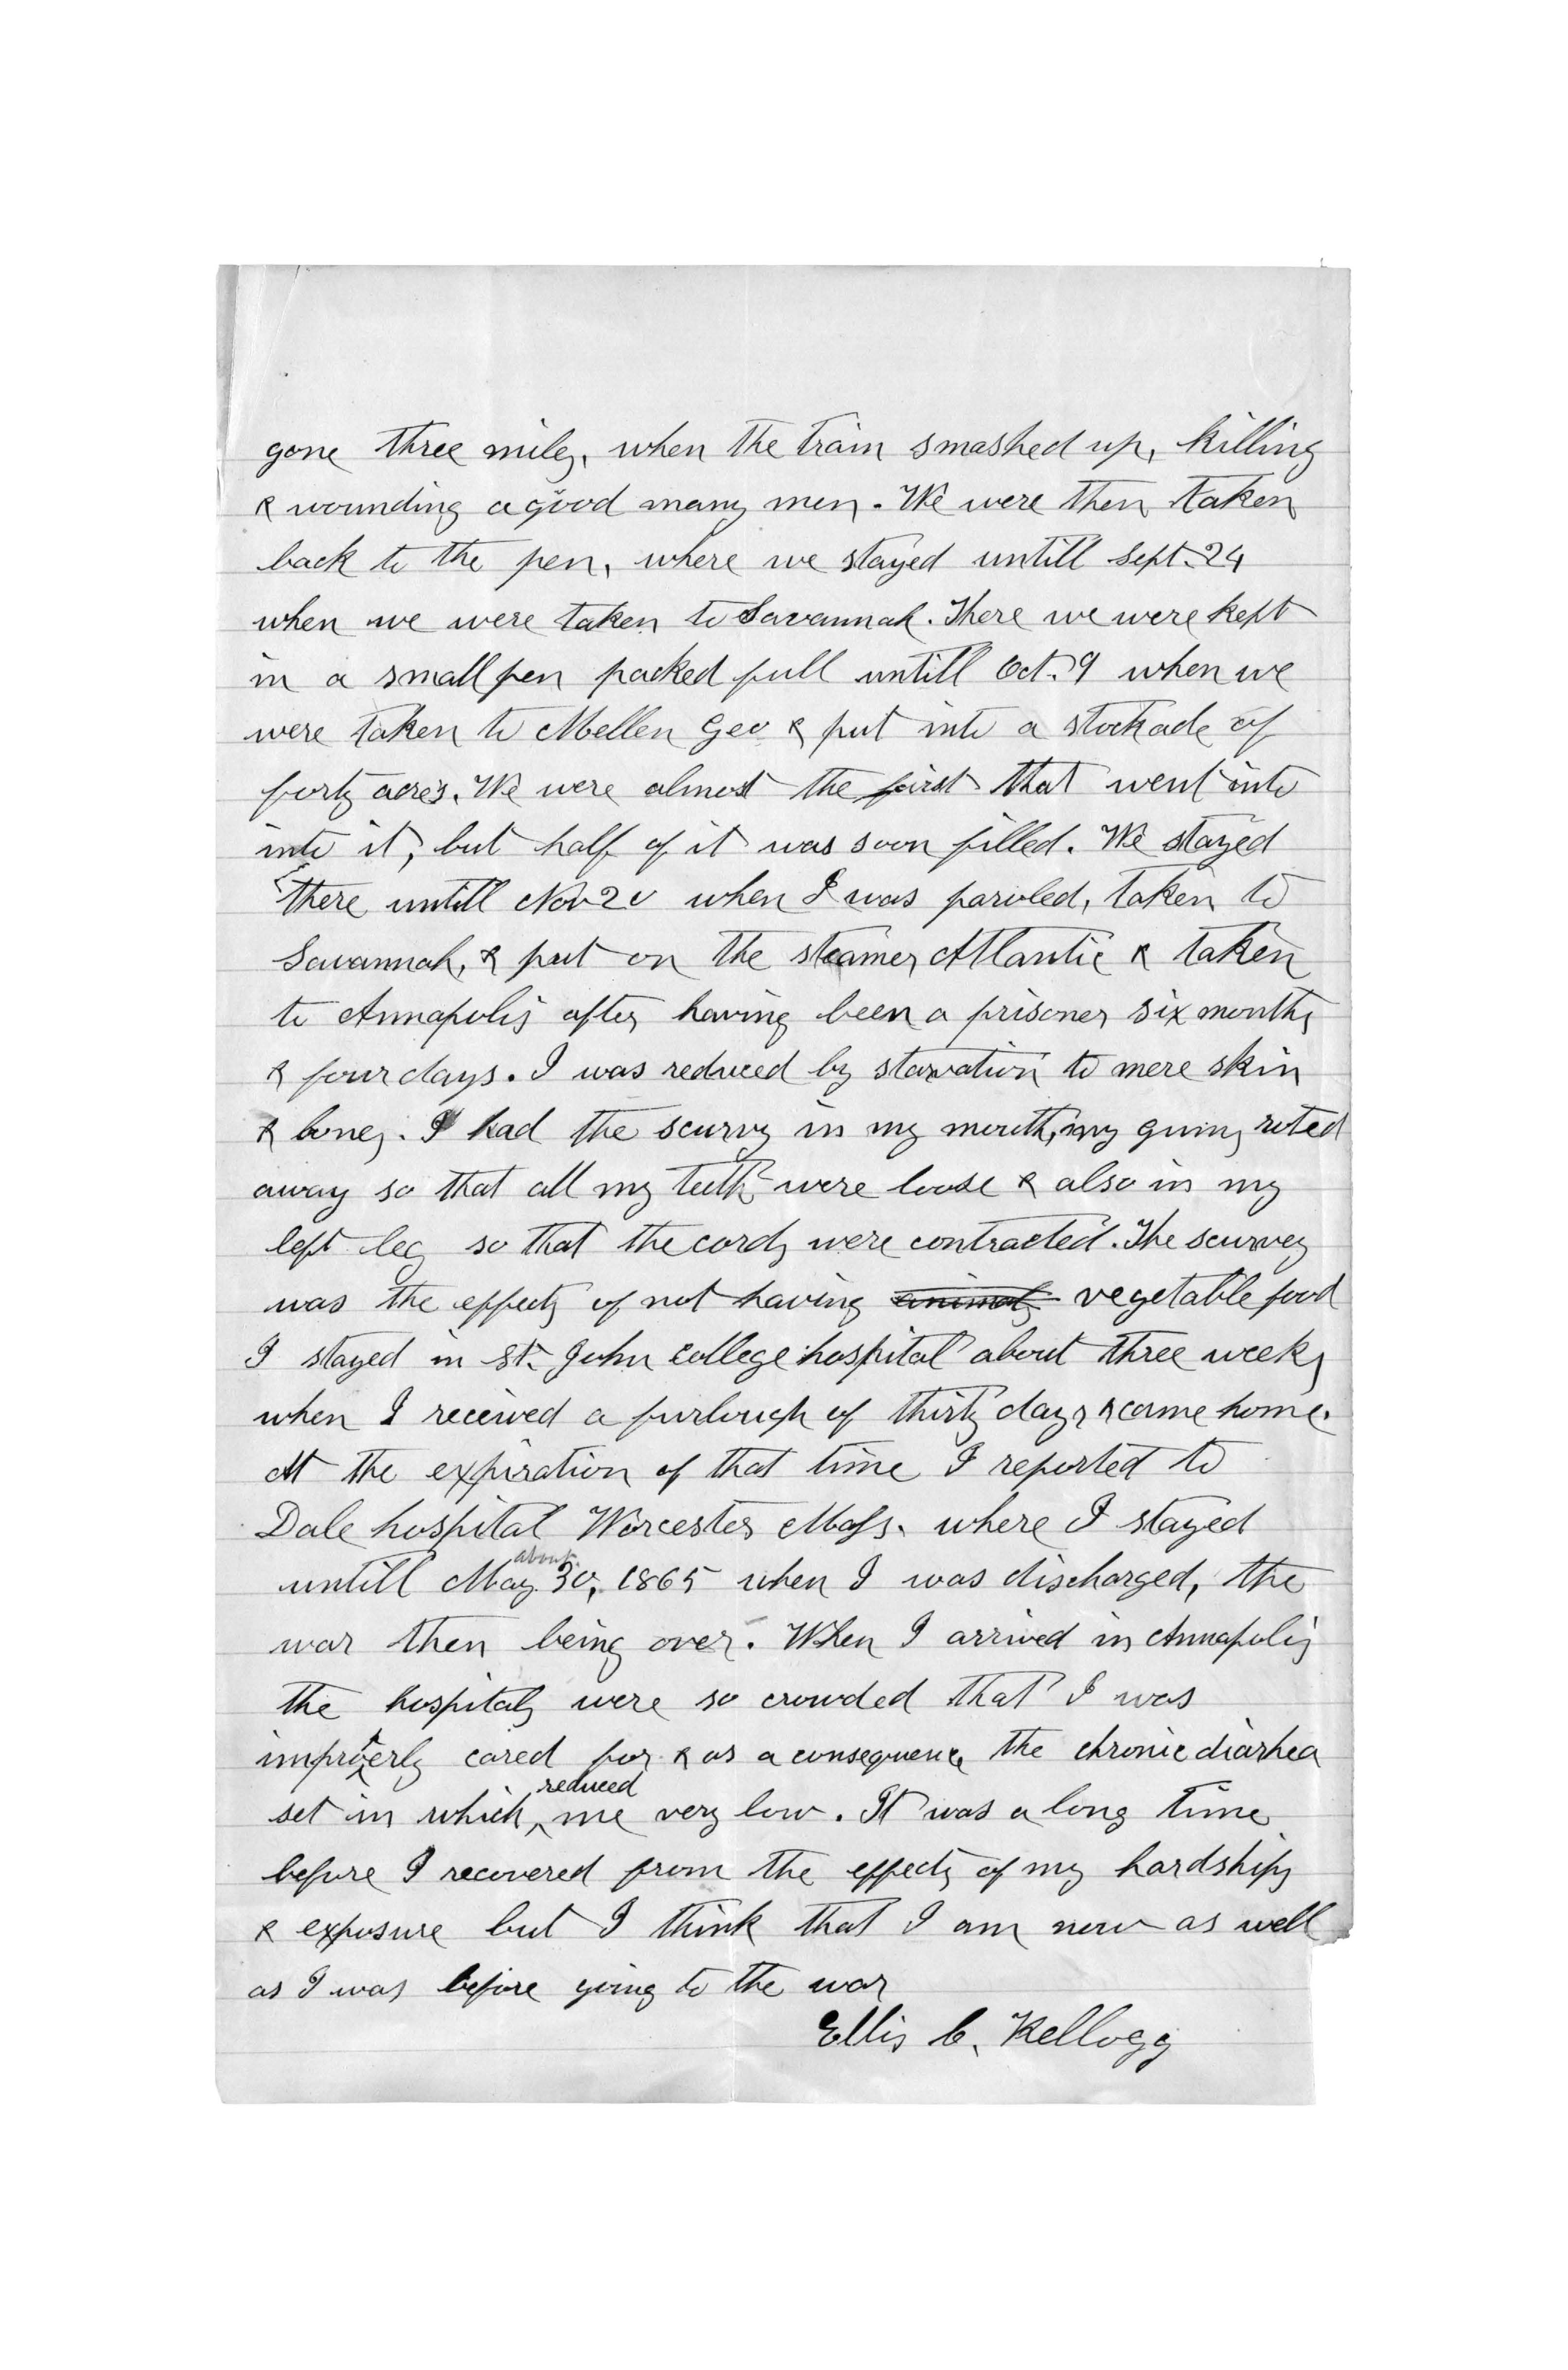 gone three miles, when the train smashed up, killing
& wounding a good many men. We were then taken
back to the pen, where we stayed untill Sept. 24
when we were taken to Savannah. There we were kept
in a small pen packed full untill Oct. 9 when we
were taken to Mellen Geo & put into a stockade of
forty acres. We were almost the first that went into
into it, but half of it was soon filled. We stayed
there untill Nov 20 when I was paroled, taken to
Savannah, & put on the steamer Atlantic & taken
to Annapolis after having been a prisoner six months
& four days. I was reduced by starvation to mere skin
& bones. I had the scurvy in my mouth, my gums roted
away so that all my teeth were loose & also in my
left leg so that the cords were contracted. The scurvey
was the effects of not having animals vegetable food
I stayed in St. John College hospital about three weeks
when I received a furlough of thirty days & came home.
At the expiration of that time I reported to
Dale hospital Worcester Mass. where I stayed
about
untill May 30, 1865 when I was discharged, the
war then being over. When I arrived in Annapolis
the hospitals were so crowded that I was
improperly cared for & as a consequence the chronic diarhea
reduced
set in which ^ me very low. It was a long time
before I recovered from the effects of my hardships
& exposure but I think that I am now as well
as I was before going to the war
Ellis C. Kellogg